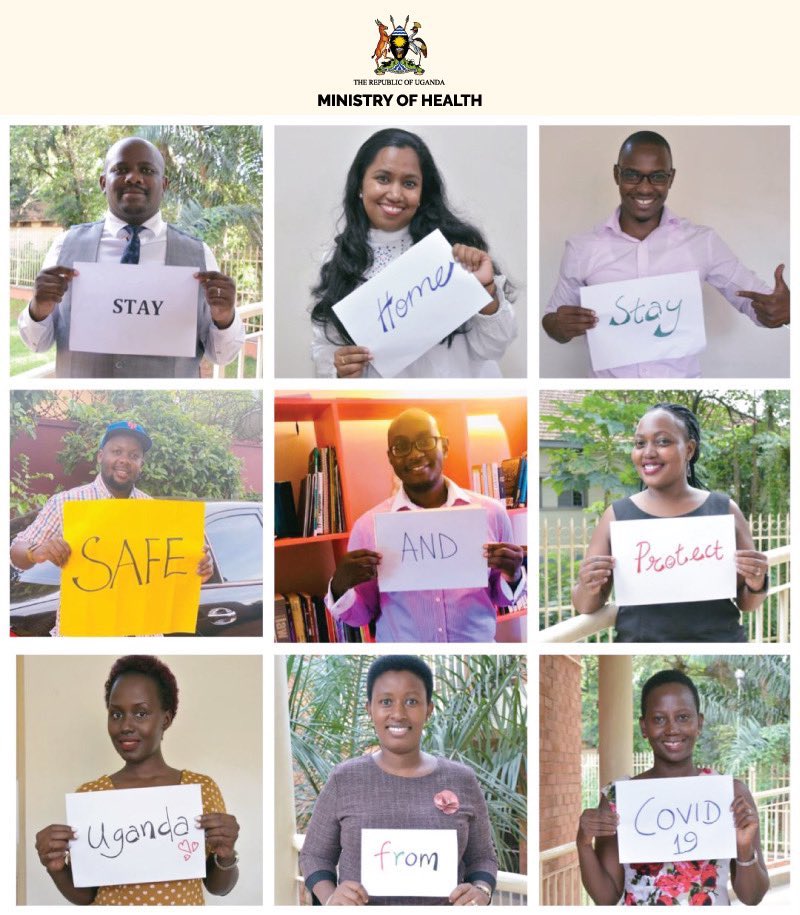 THE REPUBLIC OF UGANDA
MINISTRY OF HEALTH
STAY
Home
Stay
SAFE
AND
Protect
Uganda
from
COVID
19